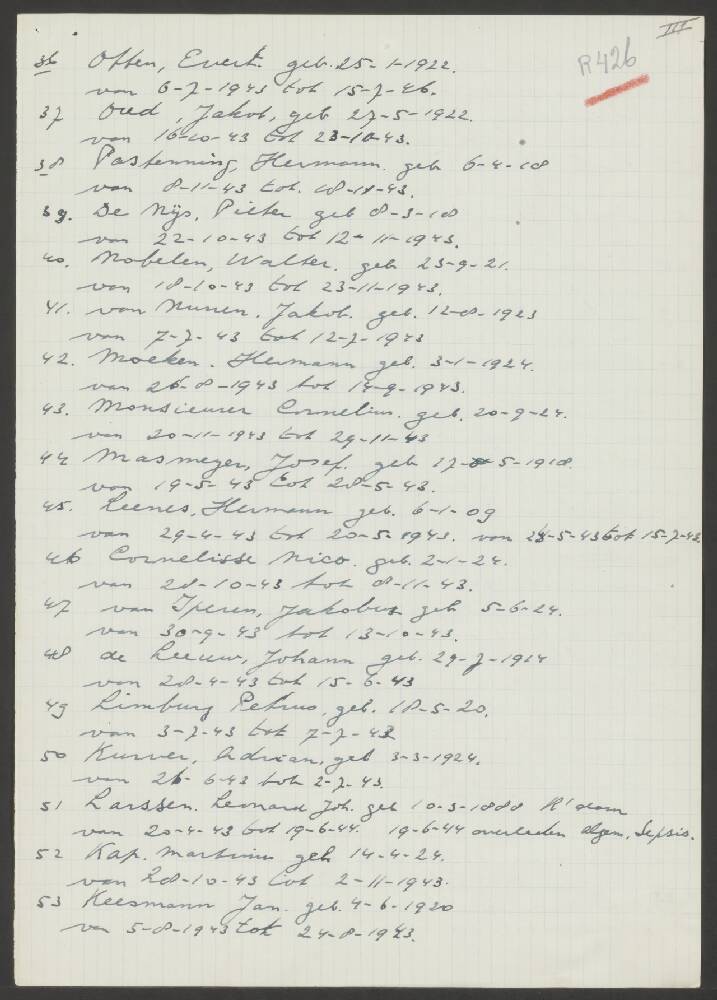 III
R426
36 Otten, Evert. geb. 25-1-1922.
van 6-7-1943 tot 15-7-46.
37 Oud, Jakob, geb 27-5-1922.
van 16-10-43 tot 23-10-43.
38 Pastenning, Hermann. geb 6-4-18
van 8-11-43 tot. 18-11-43.
39. De Nijs, Pieter geb 8-3-18
van 22-10-43 tot 12-11-1943.
40. Nobelen, Walter. geb 23-9-21.
van 18-10-43 tot 23-11-1943.
41. van Nunen. Jakob. geb. 12-8-1923
van 7-7-43 tot 12-7-1943
42. Moeken. Hermann geb. 3-1-1924.
van 26-8-1943 tot 14-9-1943.
43. Monsieurer Cornelius. geb. 20-9-24.
van 20-11-1943 tot 29-11-43
44 Masmeyer, Josef. geb 17-5-1918.
van 19-5-43 tot 28-5-43.
45. Leenes, Hermann geb. 6-1-09
van 29-4-43 tot 20-5-1943. van 24-5-43 tot 15-7-43
46 Cornelisse Nico. geb. 2-1-24.
van 28-10-43 tot 8-11-43.
47 van Iperen, Jakobus geb 5-6-24.
van 30-9-43 tot 13-10-43.
48 de Leeuw, Johann geb. 29-7-1914
van 28-4-43 tot 15-6-43
49 Limburg Petrus, geb. 18-5-20.
van 3-7-43 tot 7-7-43
50 Kurver, Adrian, geb 3-3-1924.
van 26-6-43 tot 2-7-43.
51 Larssen. Leonard Joh. geb 10-3-1888 R'dam
van 20-4-43 tot 19-6-44. 19-6-44 overleden algem. Sepsis.
52 Kap. Martinus geb 14-4-24.
van 28-10-43 tot 2-11-1943.
53 Keesmann Jan. geb. 4-6-1920
van 5-8-1943 tot 24-8-1943.